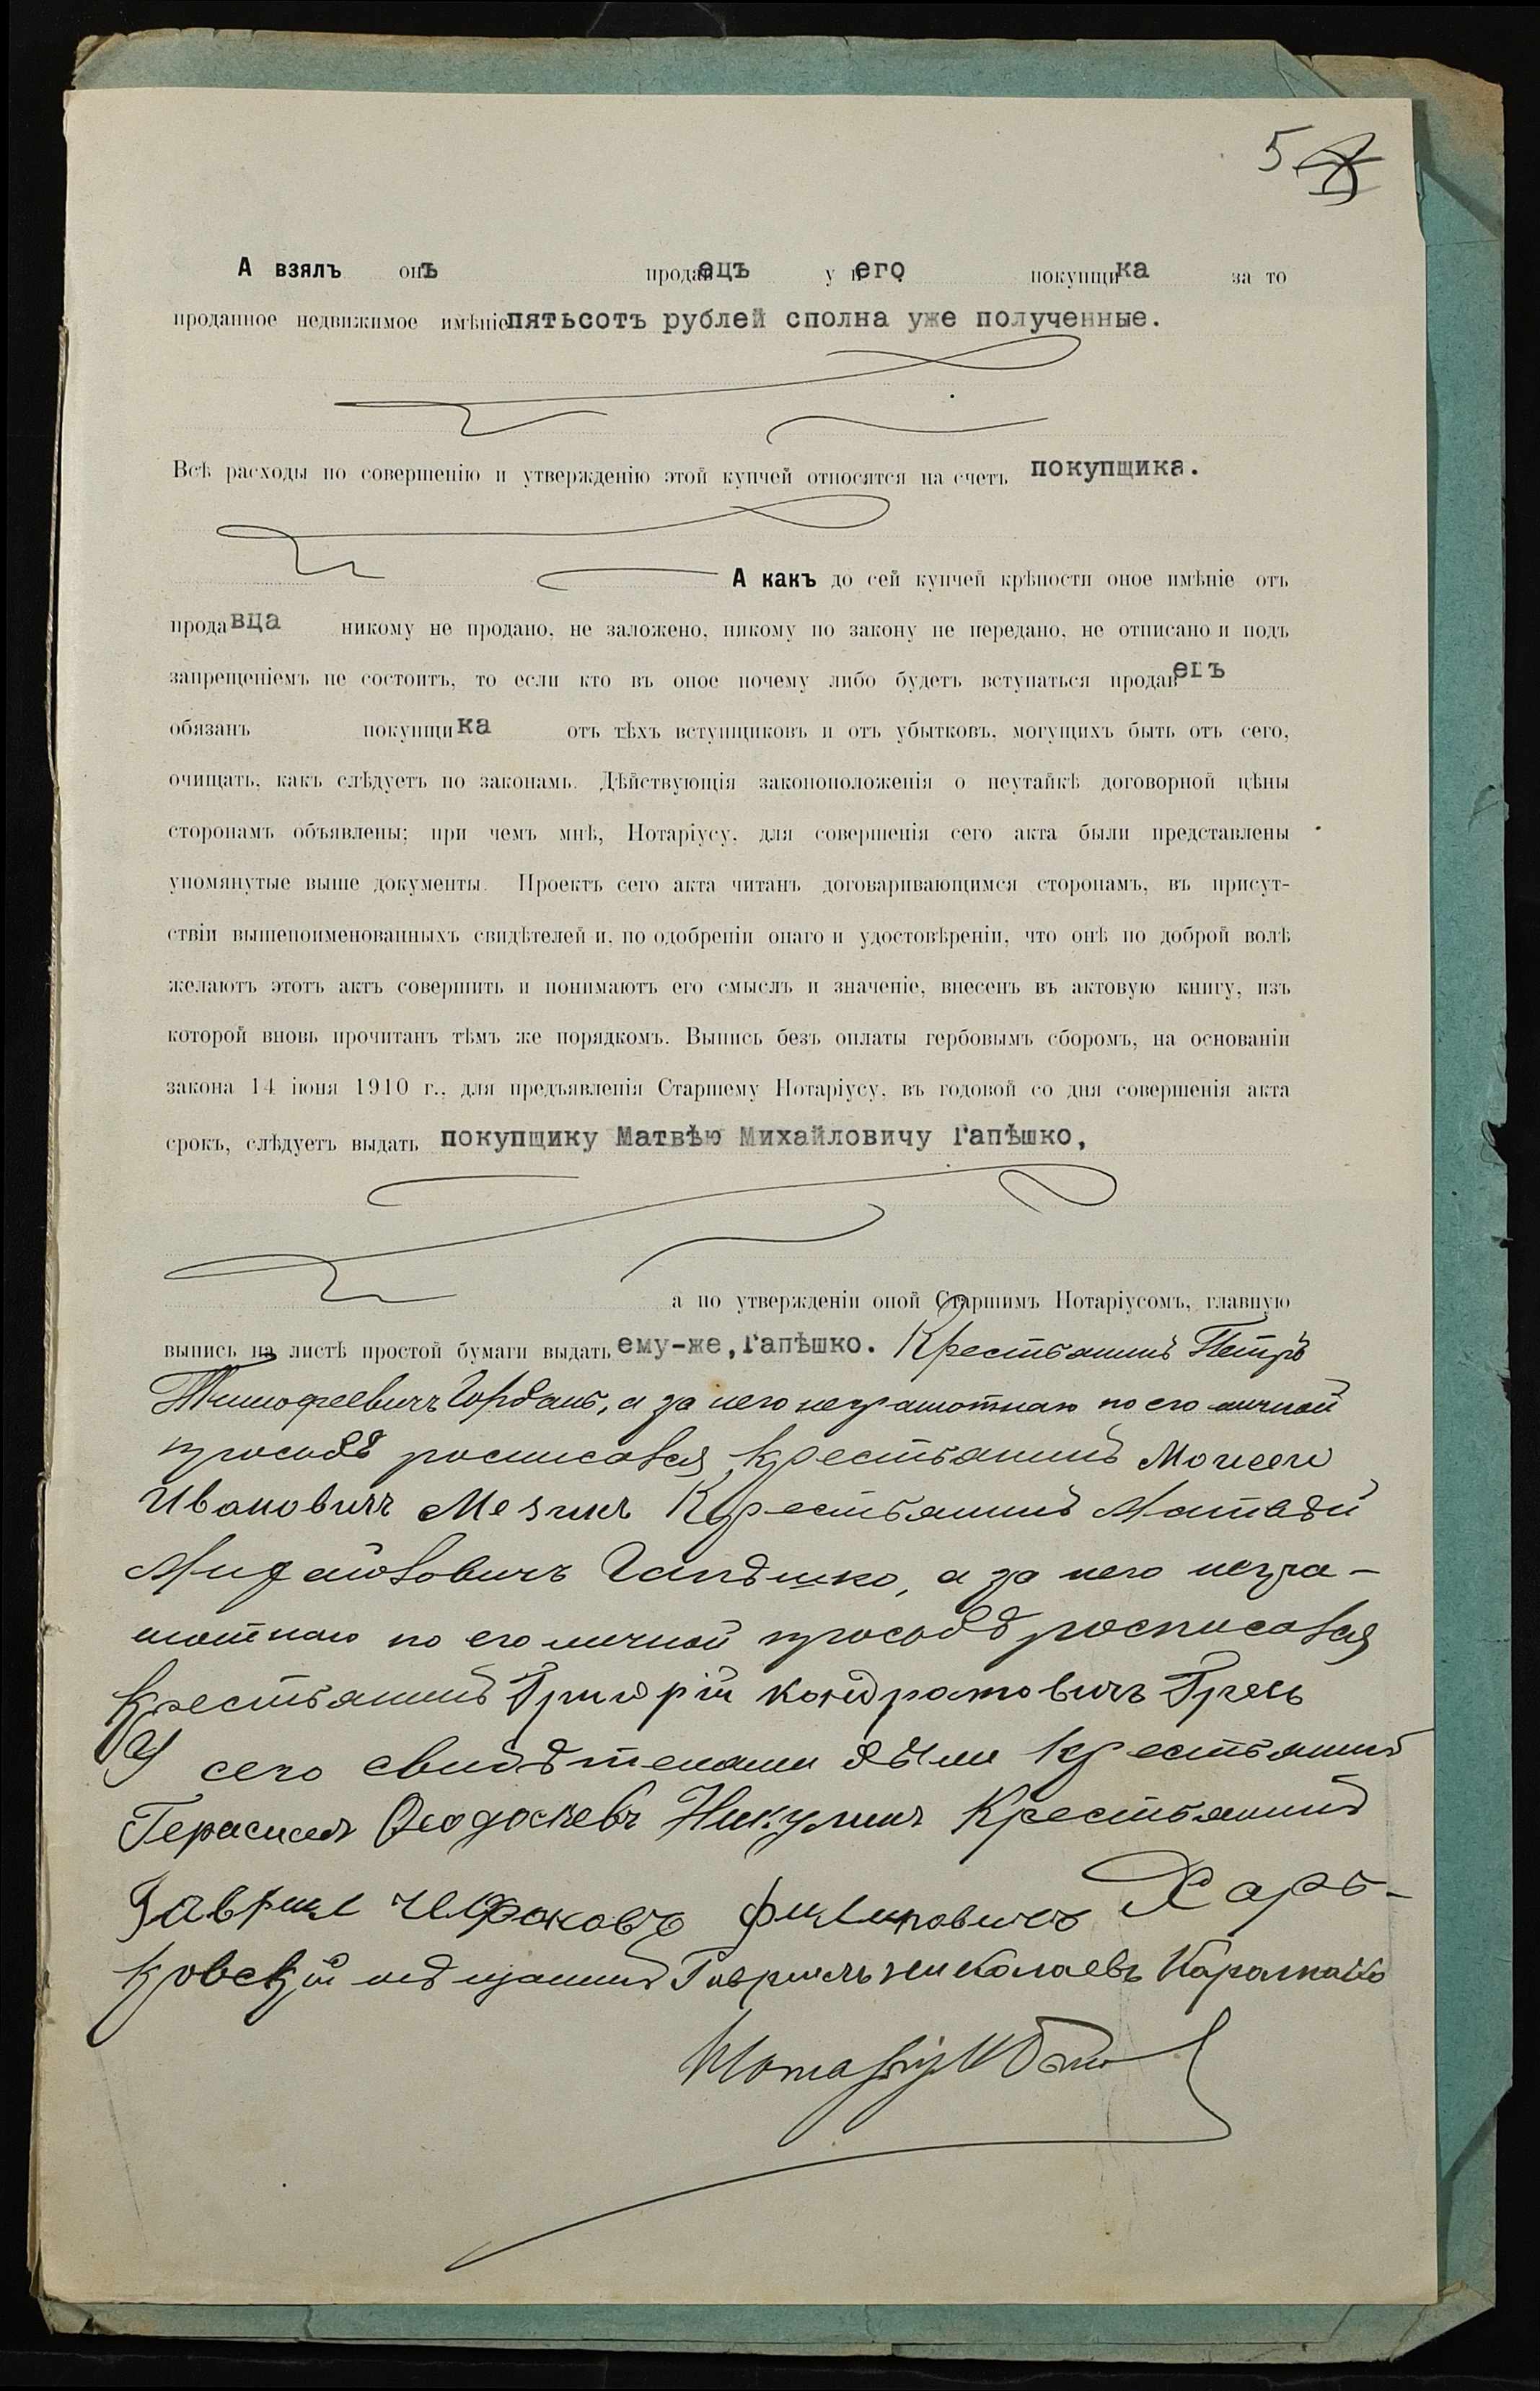 5
А взялъ онъ продавецъ у него покупщика за то
проданное недвижимое имѣніе пятьсотъ рублей сполна уже полученные.
Всѣ расходы по совершенію и утвержденію этой купчей относятся на счетъ покупщика.
А какъ до сей купчей крѣпости оное имѣніе отъ
продавца никому не продано, не заложено, никому по закону не передано, не отписано и подъ
запрещеніемъ не состоитъ, то если кто въ оное почему либо будетъ вступаться продавецъ
обязанъ покупщика отъ тѣхъ вступщиковъ и отъ убытковъ, могущихъ быть отъ сего,
очищать, какъ слѣдуетъ по законамъ. Дѣйствующія законоположенія о неутайкѣ договорной цѣны
сторонамъ объявлены; при чемъ мнѣ, Нотаріусу, для совершенія сего акта были представлены
упомянутые выше документы. Проектъ сего акта читанъ договаривающимся сторонамъ, въ присут-
ствіи вышепоименованныхъ свидѣтелей и, по одобреніи онаго и удостовѣреніи, что онѣ по доброй волѣ
желаютъ этотъ актъ совершить и понимаютъ его смыслъ и значеніе, внесенъ въ актовую книгу, изъ
которой вновь прочитанъ тѣмъ же порядкомъ. Выпись безъ оплаты гербовымъ сборомъ, на основаніи
закона 14 іюня 1910 г., для предъявленія Старшему Нотаріусу, въ годовой со дня совершенія акта
срокъ, слѣдуетъ выдать покупщику Матвѣю Михайловичу Гапѣшко,
а по утвержденіи оной Старшимъ Нотаріусомъ, главную
выпись на листѣ простой бумаги выдать ему-же, Гапѣшко. Крестьянинъ Петръ
Тимофеевичъ Гордань, а за него неграмотнаго по его личной
просьбѣ росписался крестьянинъ Моисей
Ивановичъ Мезинъ Крестьянинъ Матвѣй
Михайловичъ Гапѣшко, а за него негра-
мотнаго по его личной просьбѣ росписался
крестьянинъ Григорій Кондратовичъ Гресь
У сего свидѣтелями были крестьянинъ
Герасимъ Ѳеодосіевъ Никулинъ Крестьянинъ
Гавриил Филиповичъ Харь-
ковскій мѣщанинъ Гавріилъ Николаевъ
Нотаріус